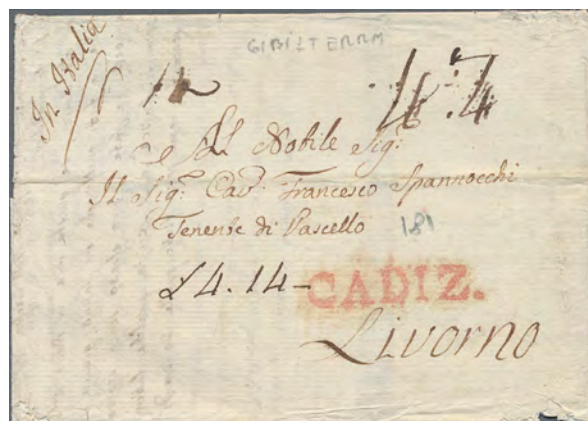 GIBILTERRA
In Italia
Al Nobile Sig:
Il Sig: Cav: Francesco Spannocchi
Tenente di Vascello
181
£4.14-
CADIZ.
Livorno